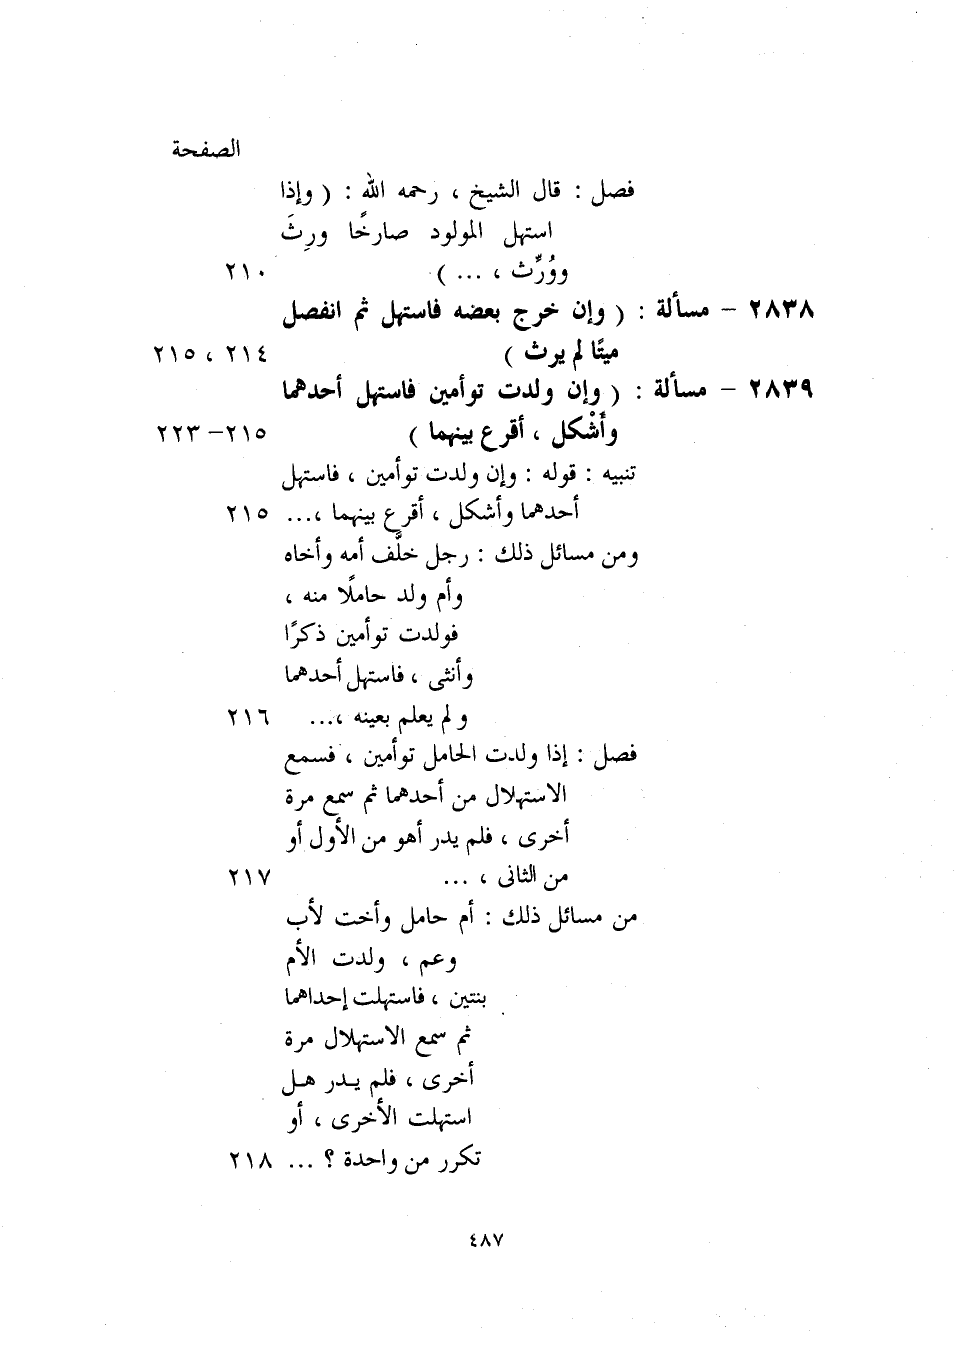 الصفحة
فصل : قال الشيخ ، رحمه الله : ( وإذا
استهل المولود صارخًا ورِثَ
ووُرِّث ، ... ) ٢١٠
٢٨٣٨ – مسألة : ( وإن خرج بعضه فاستهل ثم انفصل
ميتًا لم يرث ) ٢١٤ ، ٢١٥
٢٨٣٩ – مسألة : ( وإن ولدت توأمين فاستهل أحدهما
وأَشْكل ، أقرع بينهما ) ٢١٥– ٢٢٣
تنبيه : قوله : وإن ولدت توأمين ، فاستهل
أحدهما وأشكل ، أقرع بينهما ،... ٢١٥
ومن مسائل ذلك : رجل خلَّف أمه وأخاه
وأم ولد حاملًا منه ،
فولدت توأمين ذكرًا
وأنثى ، فاستهل أحدهما
ولم يعلم بعينه ،... ٢١٦
فصل : إذا ولدت الحامل توأمين ، فسمع
الاستهلال من أحدهما ثم سمع مرة
أخرى ، فلم يدر أهو من الأول أو
من الثانى ، ... ٢١٧
من مسائل ذلك : أم حامل وأخت لأب
وعم ، ولدت الأم
بنتين ، فاستهلت إحداهما
ثم سمع الاستهلال مرة
أخرى ، فلم يدر هل
استهلت الأخرى ، أو
تكرر من واحدة ؟ ... ٢١٨
٤٨٧